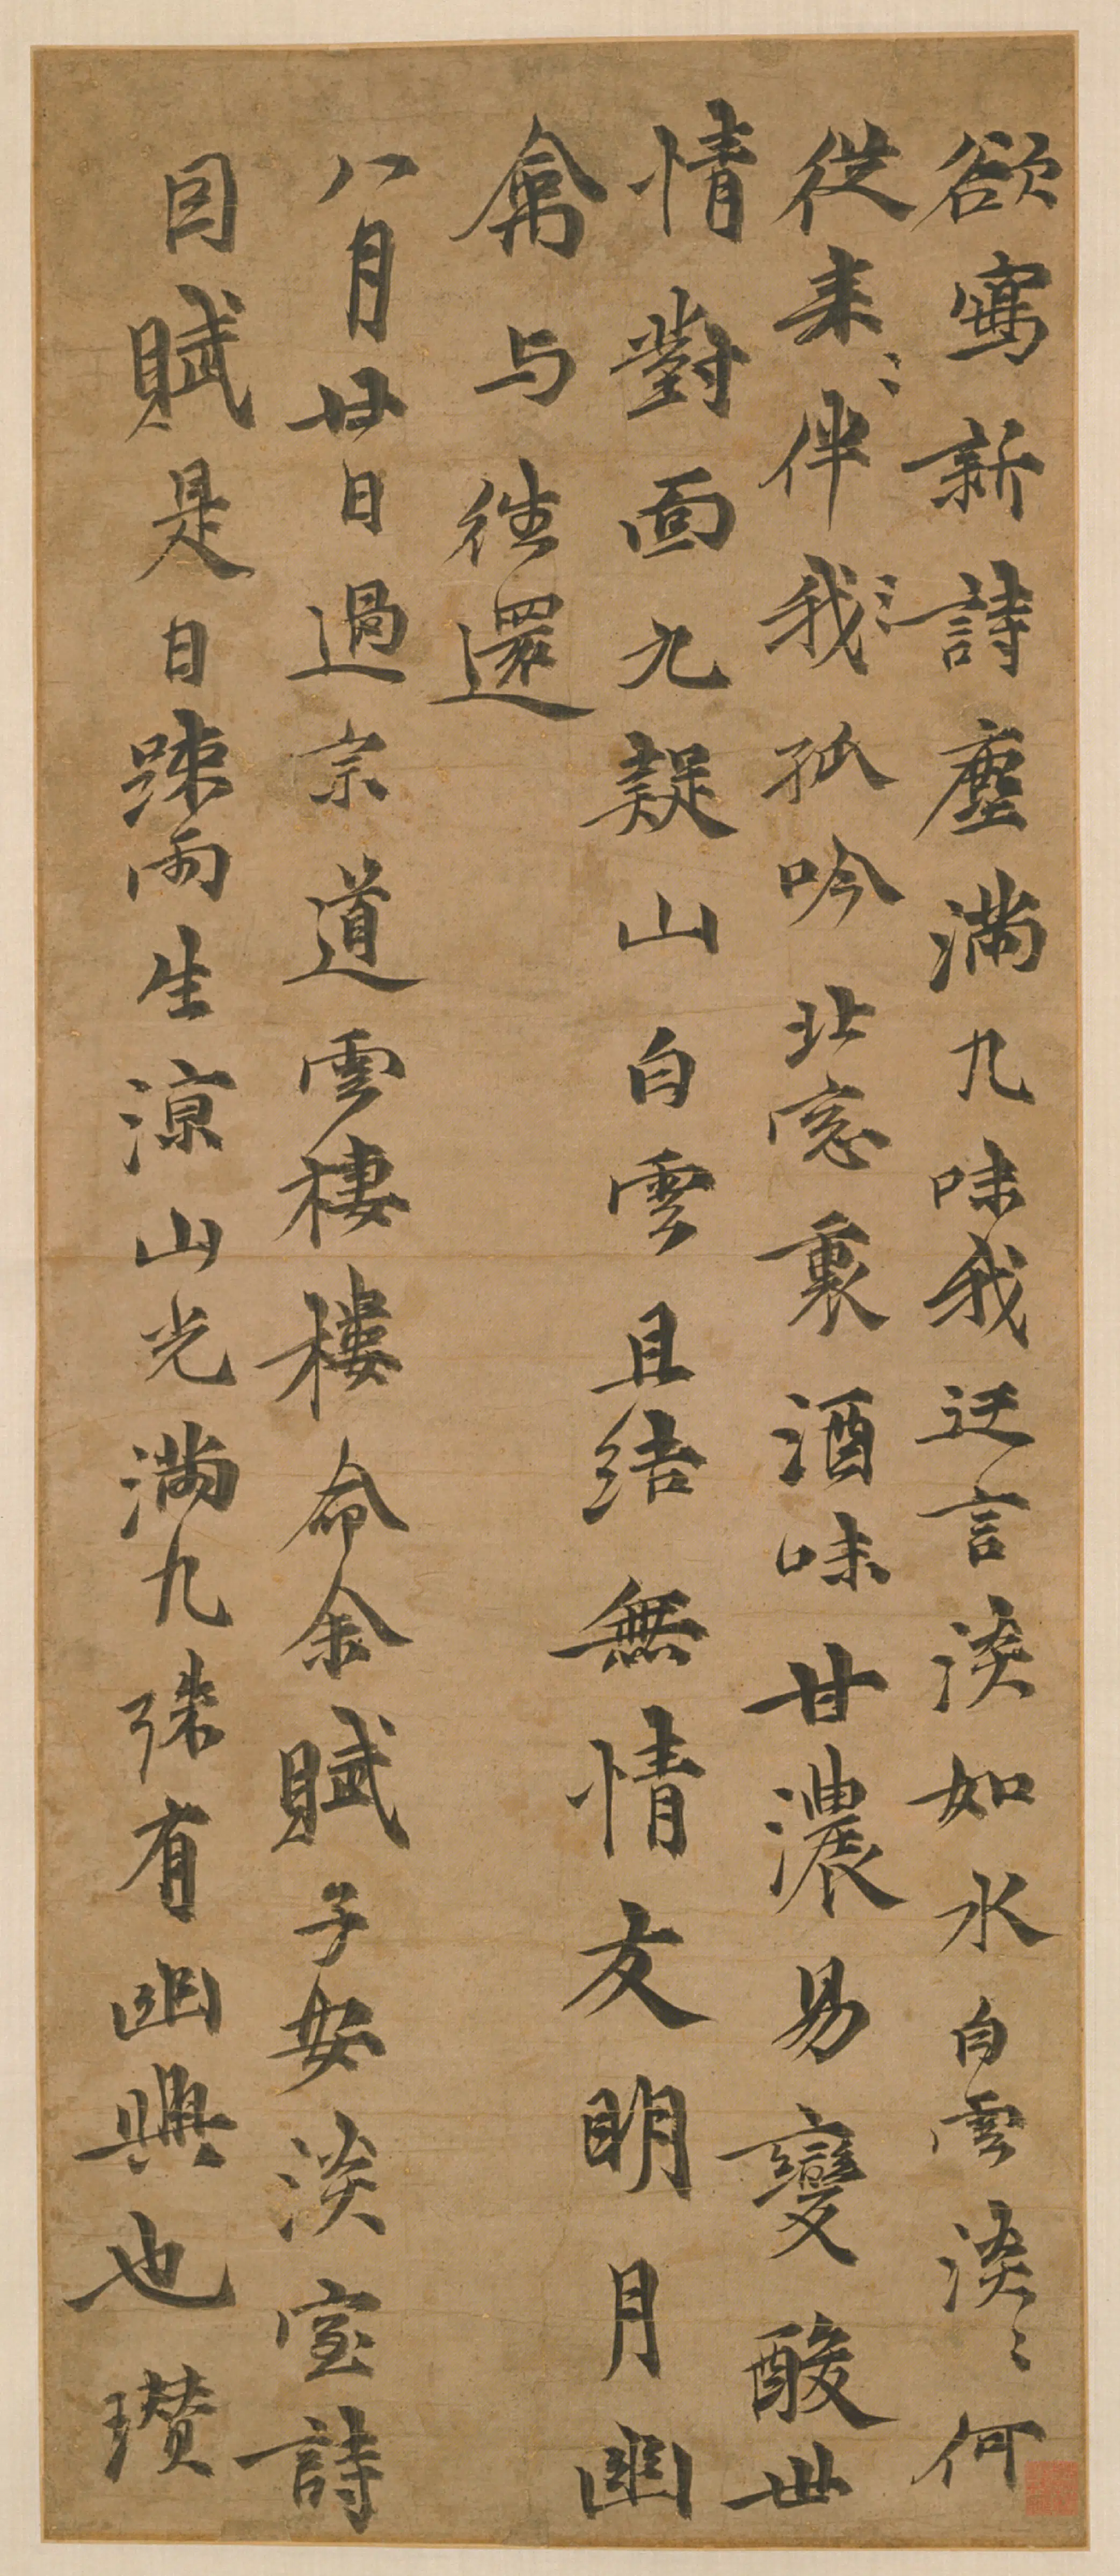 欲寫新詩塵滿九味我迂言淡如水白雲淡〻何
從来〻伴我〻孤吟北窓裏酒味甘濃易變酸世
情對面九疑山白雲且結無情友明月幽
禽与往還
八月廿日過宗道雲棲樓命余賦子安淡室詩
因賦是日疎雨生涼山光滿九殊有幽興也瓚